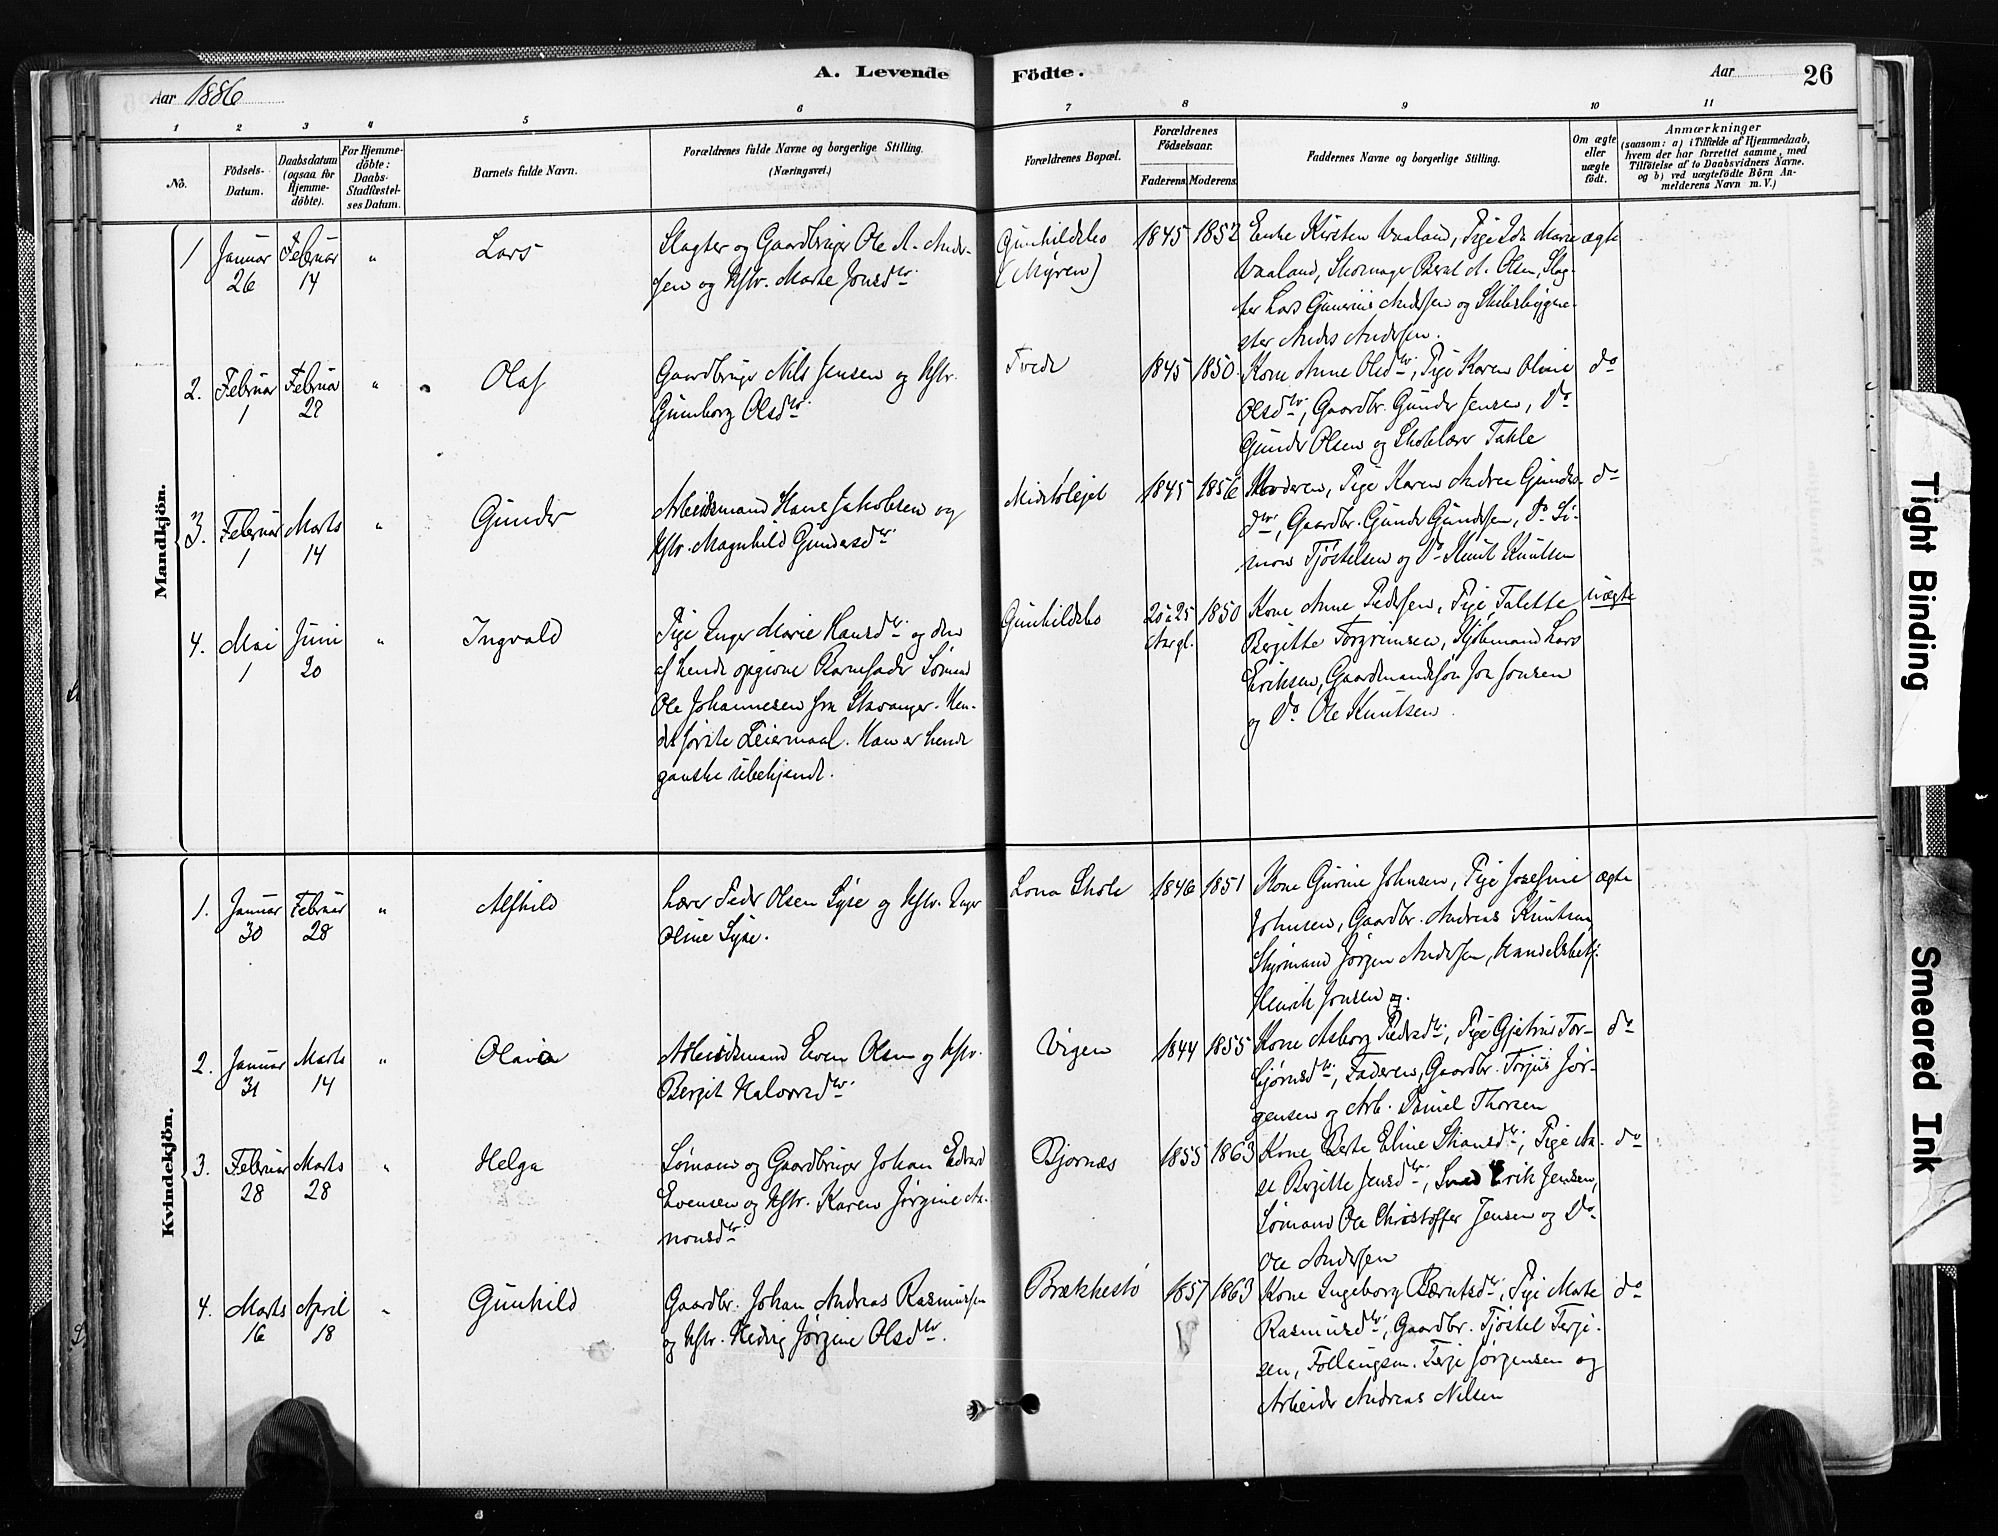 A. Levende Födte.
Aar 1886
Aar
26
1 2 3 4 5 6 7 8 9 10 11
No.
Födsels-
Datum.
Daabsdatum
(ogsaa for
Hjemme-
döbte).
For Hjemme-
döbte:
Daabs-
Stadfæstel-
ses Datum.
Barnets fulde Navn.
Forældrenes fulde Navne og borgerlige Stilling.
(Næringsvei.)
Forældrenes Bopæl.
Forældrenes
Födselsaar.
Faderens. Moderens.
Faddernes Navne og borgerlige Stilling.
Om ægte
eller
uægte
födt.
Anmærkninger
(saasom: a) i Tilfælde af Hjemmedaab,
hvem der har forrettet samme, med
Tilföielse af to Daabsvidners Navne.
og b) ved uægtefödte Börn An-
melderens Navn m. V.)
Mandkjön.
1 Januar 26
Februar 14
"
Lars
Slagter og Gaardbruger Ole A. Ander-
sen og Hstr. Marte Jonsdtr.
Gunhildsbo
(Myren)
1845 1852
Enke Kirsten Vaaland, Pige Ida Marie
Vaaland, Skomager Berat A. Olsen, Slag-
ter Lars Gunerius Andersen og Skibsbygme-
ster Anders Andersen.
ægte
2. Februar 1
Februar 28
"
Olaf
Gaardbruger Nils Jensen og Hstr.
Gunborg Olsdtr.
Tvede
1845 1850
Kone Anne Olsdtr, Pige Karen Oline
Olsdtr, Gaardbr. Gunder Jensen, Do
Gunder Olsen og Skolelærer Takle
do
3. Februar 1
Marts 14
"
Gunder
Arbeidsmand Hans Jakobsen og
Hstr. Magnhild Gundersdtr.
Midtbølejet
1845 1856
Moderen, Pige Karen Andrea Gunders-
dtr, Gaardbr. Gunder Gundersen, Do Si-
mon Tjøstelsen og Do Knut Knutsen
do
4. Mai 1
Juni 20
"
Ingvald
Pige Inger Marie Hansdtr. og den
af hende opgivne Barnefader Sømand
Ole Johannesen fra Stavanger. Hen-
des første Leiermaal. Han er hende
ganske ubekjendt.
Gunhildsbo
20 à 25
Aar gl.
1850
Kone Anne Pedersen, Pige Talette
Bergitte Torgrimsen, Kjøbmand Lars
Eriksen, Gaardmandssøn Jon Jonsen
og Do Ole Knutsen.
uægte
Kvindekjön.
1. Januar 30
Februar 28
"
Alfhild
Lærer Peder Olsen Lyse og Hstr. Inger
Oline Lyse.
Lona Skole
1846 1851
Kone Gurine Johnsen, Pige Josefine
Johnsen, Gaardbr. Andreas Knutsen,
Styrmand Jørgen Andersen, Handelsbetj.
Henrik Jonsen og.
ægte
2. Januar 31
Marts 14
"
Olava
Arbeidsmand Even Olsen og Hstr.
Bergit Halvorsdtr.
Vigen
1844 1855
Kone Asborg Pedersdtr., Pige Gjetrus Tor-
bjørnsdtr., Faderen, Gaardbr. Torjus Jør-
gensen og Arb. Daniel Thorsen
do
3. Februar 28
Marts 28
"
Helga
Sømand og Gaardbruger Johan Edvard
Evensen og Hstr. Karen Jørgine Aa-
nonsdtr.
Bjornæs
1855 1863
Kone Berte Eline Stiansdtr., Pige Aa-
se Bergitte Jensdtr., Smed Erik Jensen,
Sømand Ole Christoffer Jensen og Do
Ole Andersen
do
4. Marts 16
April 18
"
Gunhild
Gaardbr. Johan Andreas Rasmussen
og Hstr. Hedvig Jørgine Olsdtr.
Brækkestø
1857 1863
Kone Ingeborg Berntsdtr, Pige Marte
Rasmusdtr, Gaardbr. Tjøstel Terje-
sen, Follaugsm. Terje Jørgensen og
Arbeider Andreas Nilsen
do
Tight Binding
Smeared Ink